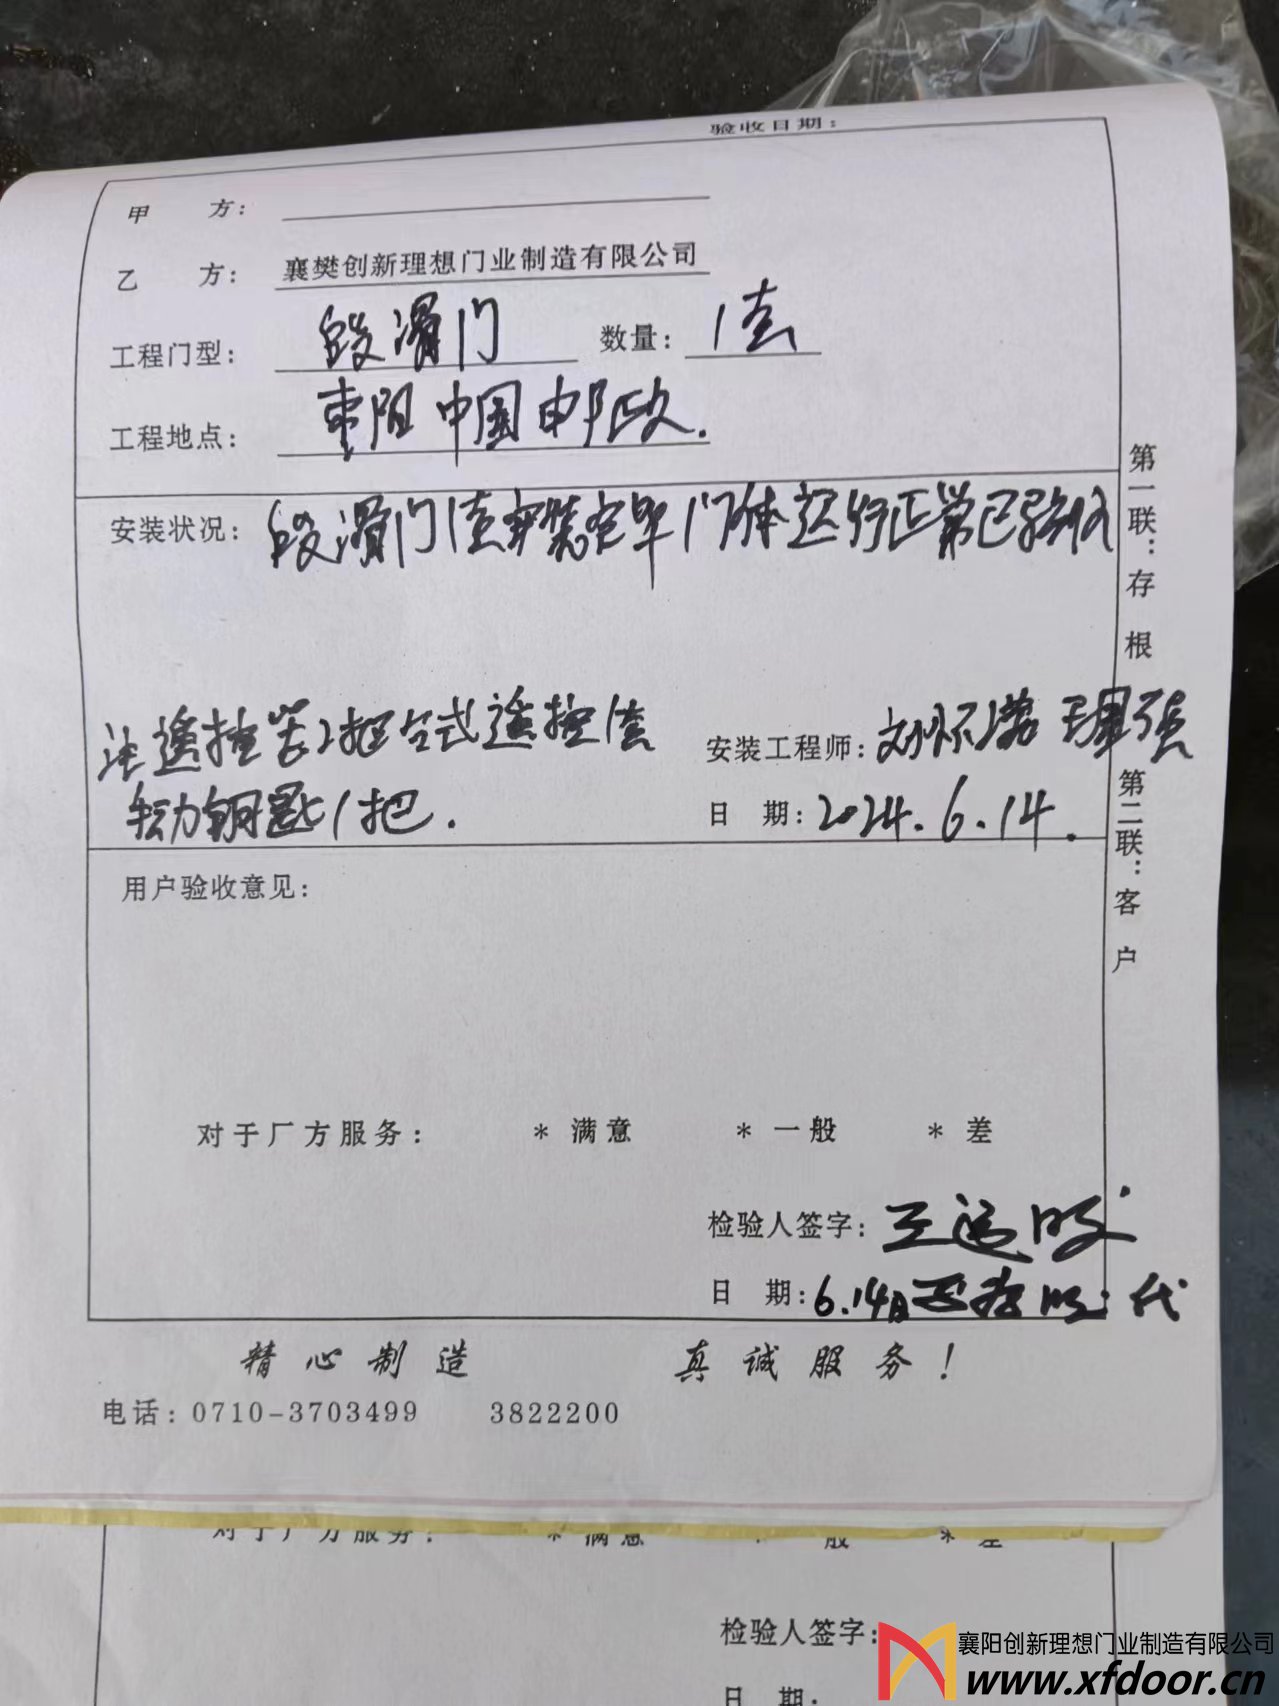 验收日期:
甲 方:
乙 方: 襄樊创新理想门业制造有限公司
工程门型: 段滑门 数量: 1套
工程地点: 枣阳中国邮政.
安装状况: 段滑门1套安装完毕门体运行正常已验收
注遥控器2把台式遥控1套
手动钥匙1把.
安装工程师: 刘怀 强
日 期: 2024.6.14.
第一联:存根 第二联:客户
用户验收意见:
对于厂方服务: *满意 *一般 *差
检验人签字: 王运
日 期: 6.14日 代
精心制造 真诚服务!
电话:0710-3703499 3822200
对于厂方服务: *满意 *一般 *差
检验人签字:
日 期:
襄阳创新理想门业制造有限公司
www.xfdoor.cn